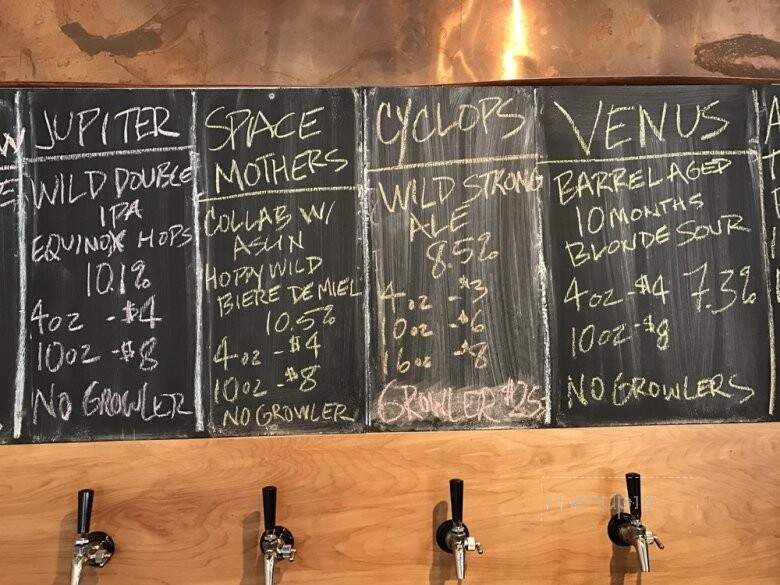 JUPITER
WILD DOUBLE
IPA
EQUINOX HOPS
10.1%
4oz - $4
10oz - $8
NO GROWLER
SPACE
MOTHERS
COLLAB W/
ASLIN
HOPPY WILD
BIERE DE MIEL
10.5%
4oz - $4
10oz - $8
NO GROWLER
CYCLOPS
WILD STRONG
ALE
8.5%
4oz - $3
10oz - $6
16oz - $8
GROWLER $25
VENUS
BARREL AGED
10 MONTHS
BLONDE SOUR
7.3%
4oz - $4
10oz - $8
NO GROWLERS